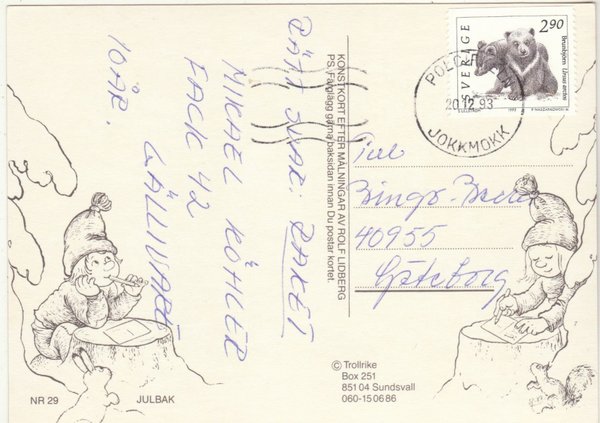 RÄTT SVAR: RAKET
MIKAEL KÖHLER
FACK 42
GÄLLIVARE
10 ÅR.
KONSTKORT EFTER MÅLNINGAR AV ROLF LIDBERG
PS. Färglägg gärna baksidan innan Du postar kortet.
SVERIGE
2.90
Brunbjörn Ursus arctos
1993
20.12.93
JOKKMOKK
Till
Bingo-
40955
Göteborg
NR 29
JULBAK
© Trollrike
Box 251
851 04 Sundsvall
060-15 06 86